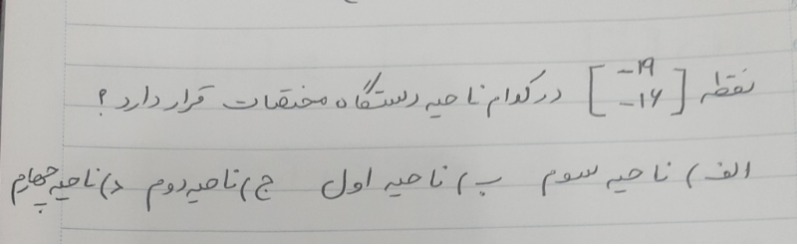 نقطه [-۱۹ -۱۶] در کدام ناحیه دستگاه مختصات قرار دارد؟
الف) ناحیه سوم ب) ناحیه اول ج) ناحیه دوم د) ناحیه چهارم